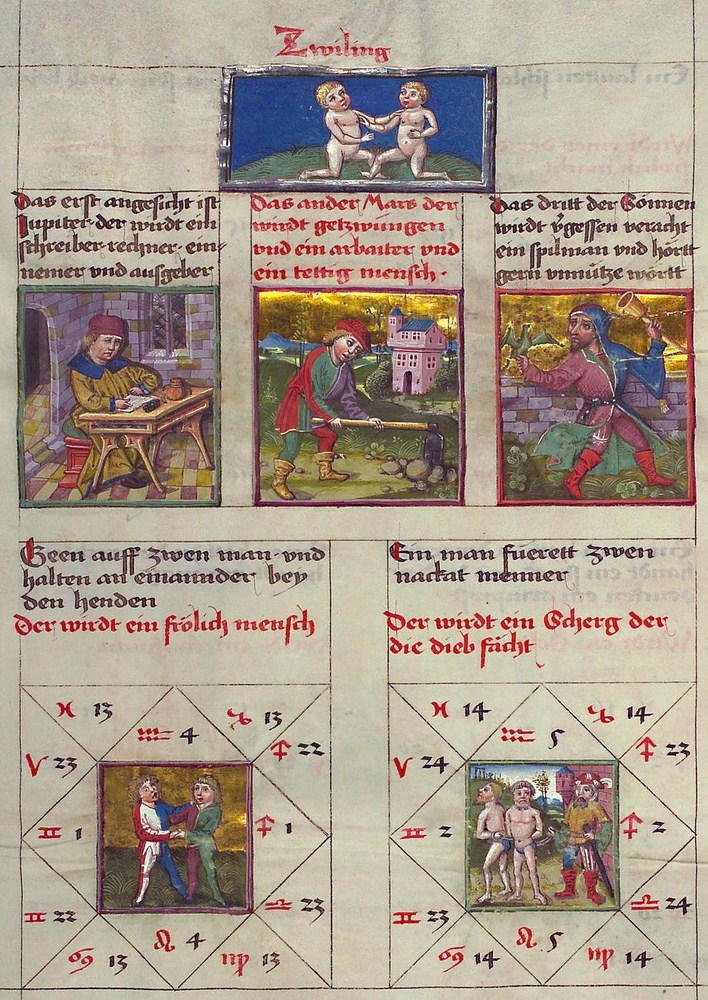 Zwiling
Das erst angesicht ist
Jupiter der wirdt ein
schreiber rechner ein-
nemer vnd ausgeber
Das ander Mars der
wirdt getzwungen
vnd ein arbaiter vnd
ein tettig mensch.
Das dritt der Sonnen
wirdt v̈gessen veracht
ein spilman vnd hörtt
gern vnnütze wortt
Geen auff zwen man vnd
halten an einannder bey
den henden
Der wirdt ein frölich mensch
Ein man fuerett zwen
nackat menner
Der wirdt ein Scherg der
die dieb fächt
♓ 13 ♒ 4 ♑ 13
♈ 23 ♐ 22
♊ 1 ♐ 1
♊ 22 ♎ 23
♋ 13 ♌ 4 ♍ 13
♓ 14 ♒ 5 ♑ 14
♈ 24 ♐ 23
♊ 2 ♐ 2
♊ 23 ♎ 24
♋ 14 ♌ 5 ♍ 14